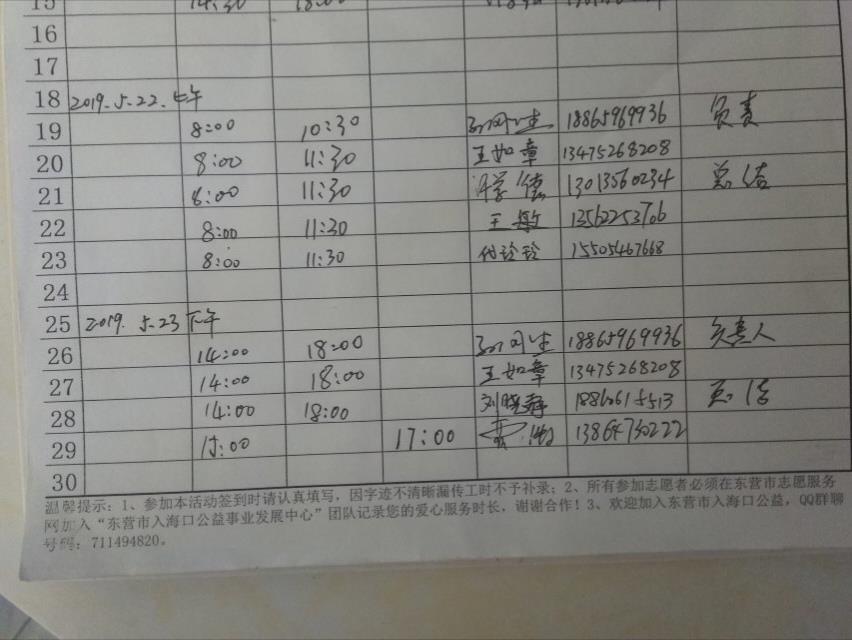 15 14:30 18:00
16
17
18 2019.5.22.上午
19 8:00 10:30 18865969936 负责
20 8:00 11:30 王如章 13475268208
21 8:00 11:30 学德 13013560234 总结
22 8:00 11:30 王敏 13562253706
23 8:00 11:30 代玲玲 15505467668
24
25 2019.5.23下午
26 14:00 18:00 18865969936 负责人
27 14:00 18:00 王如章 13475268208
28 14:00 18:00 刘晓静 18860615513 总结
29 15:00 17:00 13864730222
30
温馨提示：1、参加本活动签到时请认真填写，因字迹不清晰漏传工时不予补录；2、所有参加志愿者必须在东营市志愿服务
网加入“东营市入海口公益事业发展中心”团队记录您的爱心服务时长，谢谢合作！3、欢迎加入东营市入海口公益，QQ群聊
号码：711494820。